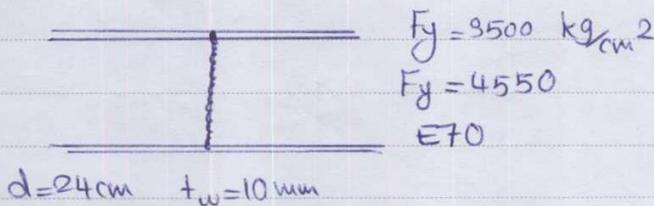 Fy = 3500 kg/cm2
Fy = 4550
E70
d=24cm tw=10mm